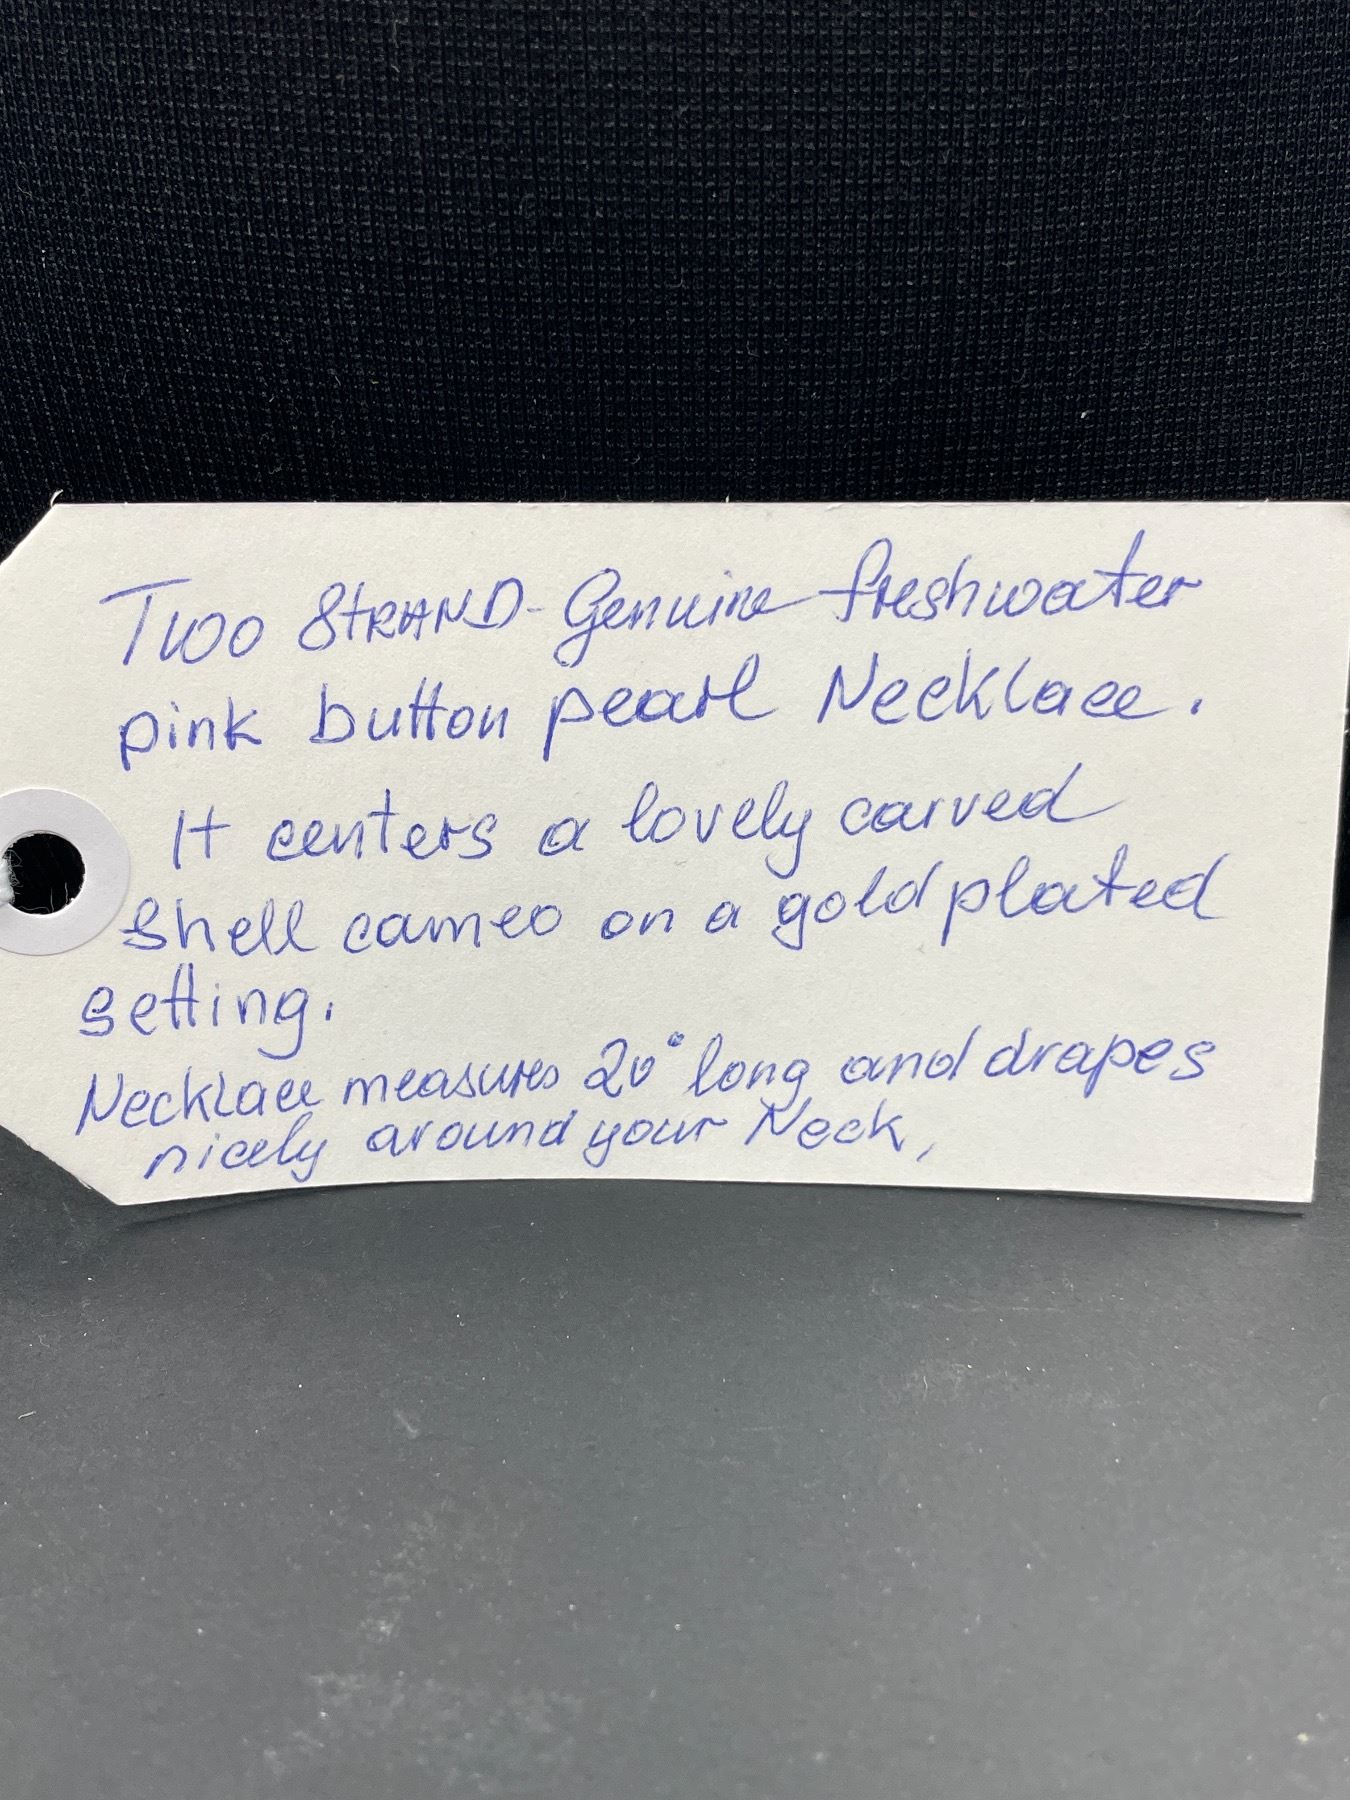 Two STRAND - Genuine freshwater
pink button pearl Necklace.
It centers a lovely carved
shell cameo on a gold plated
setting.
Necklace measures 20" long and drapes
nicely around your Neck,